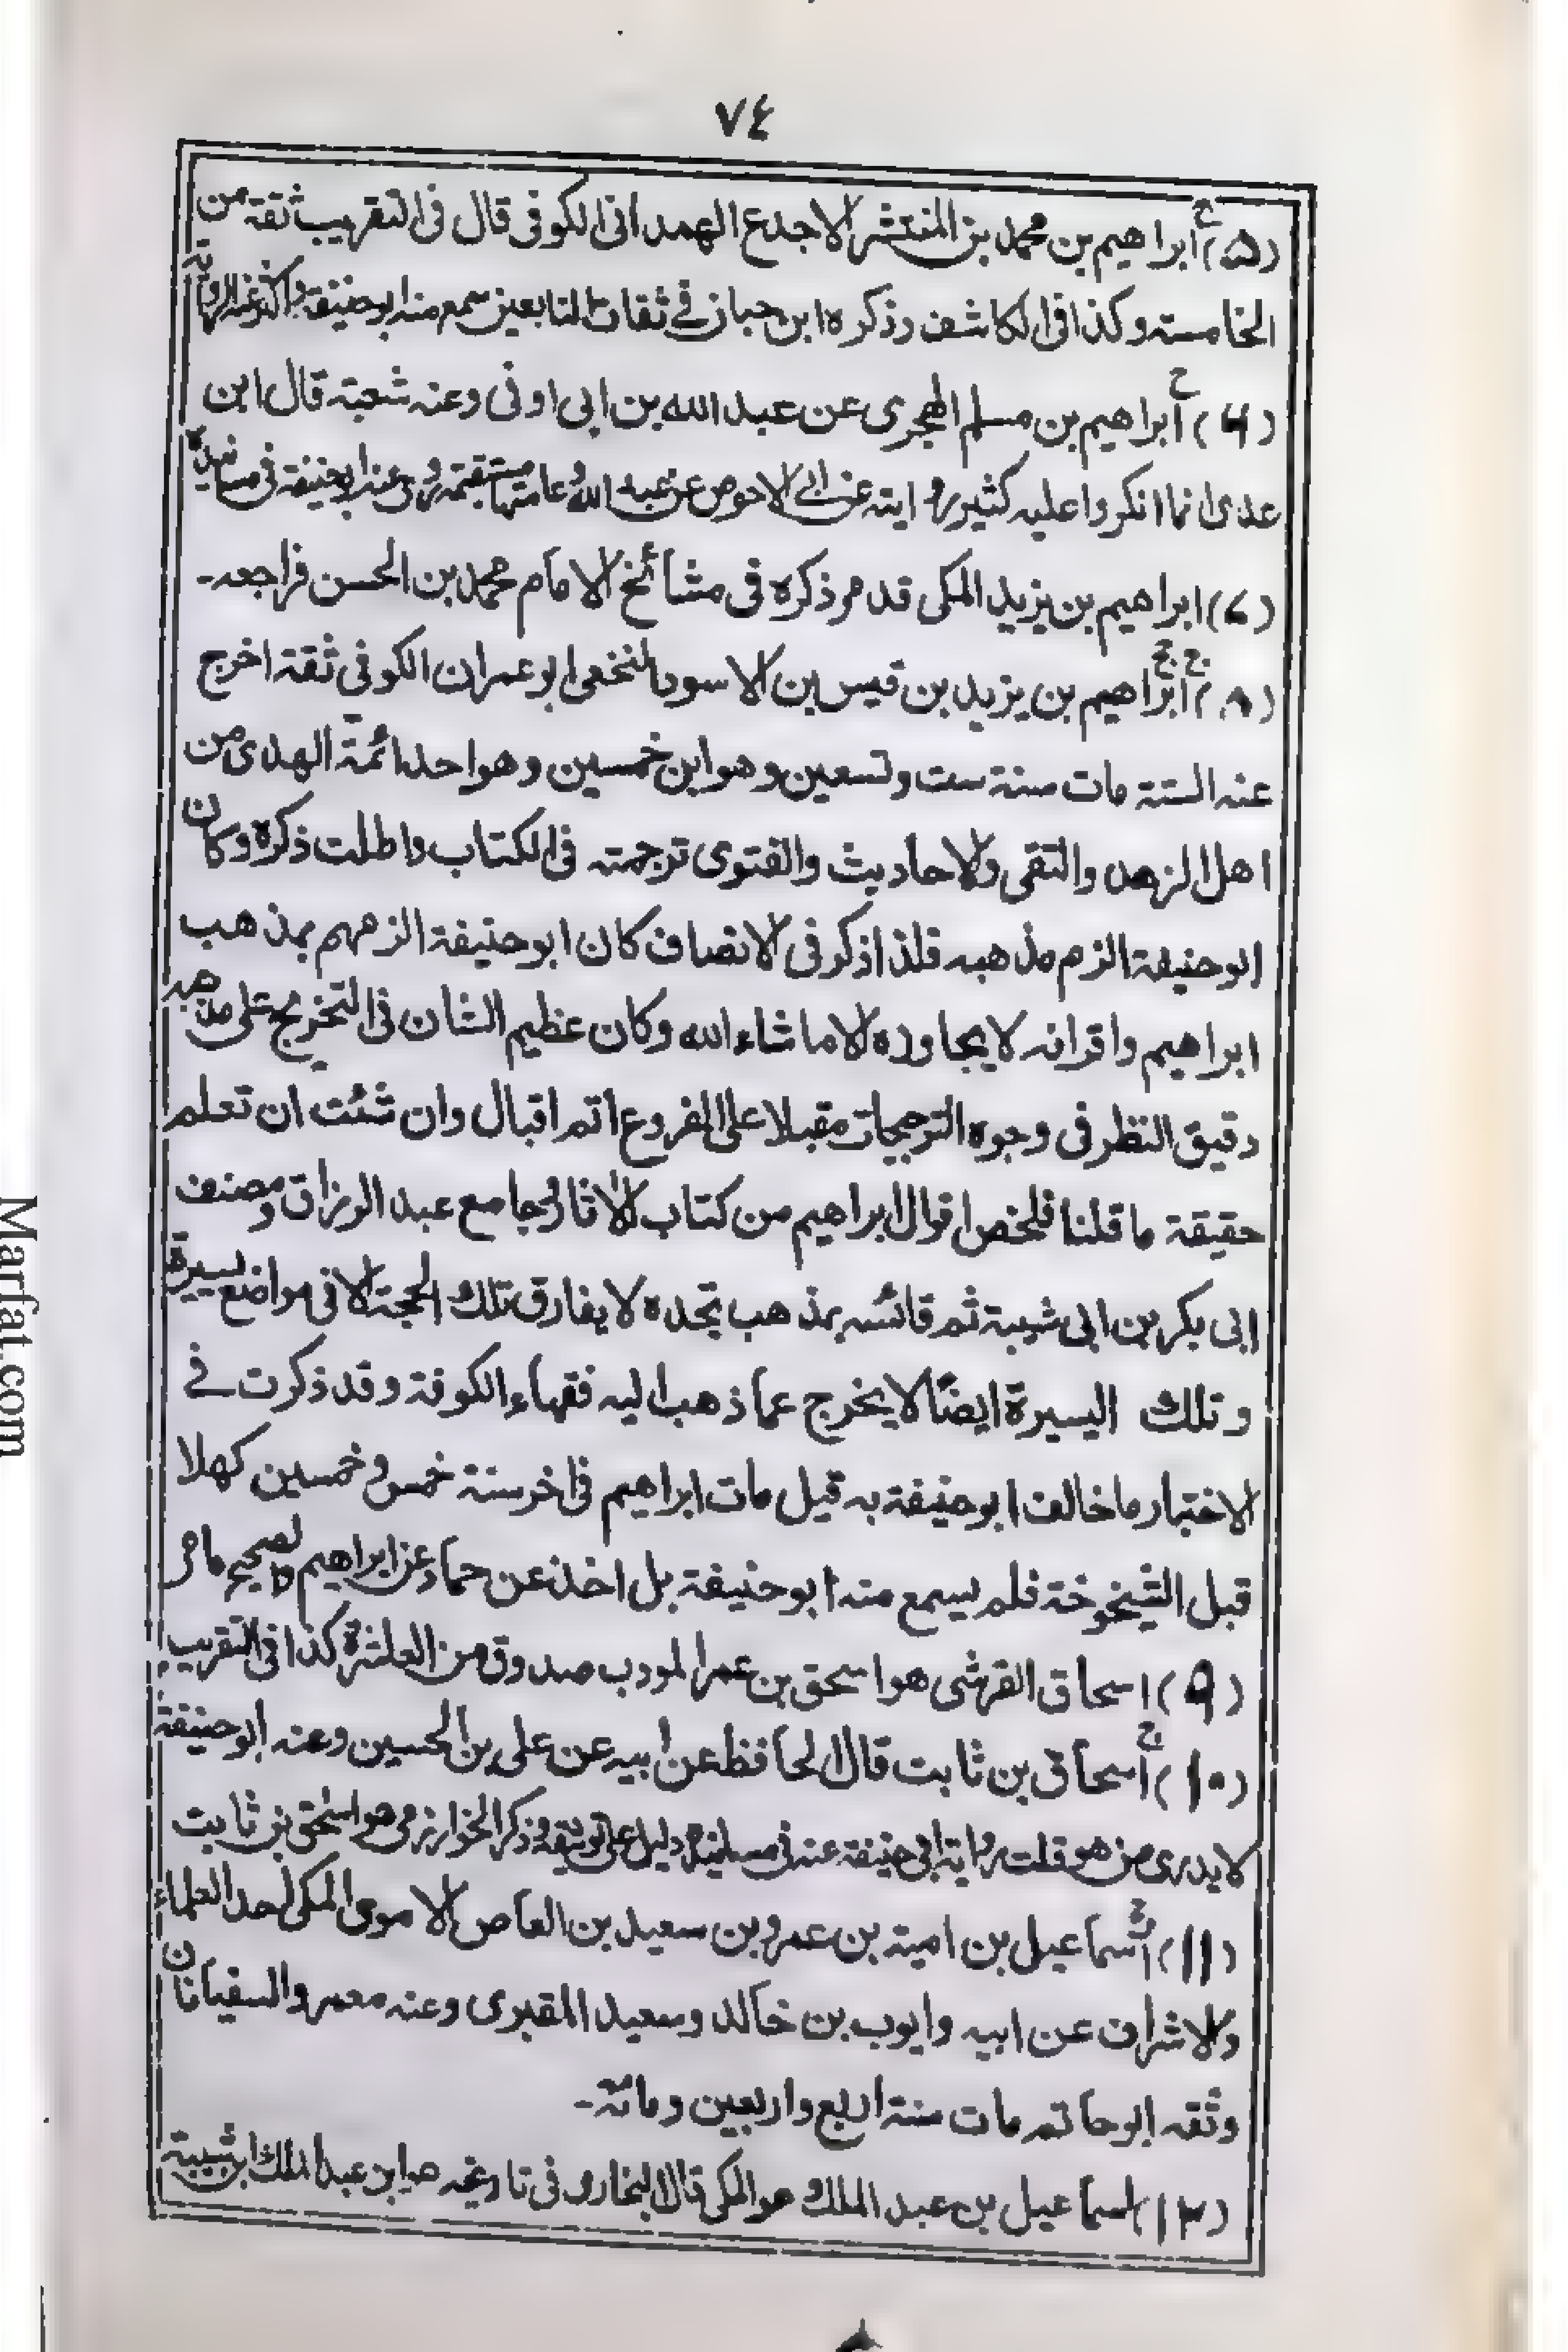 ٧٤
(۵) ابراهيم بن محمد بن المنتشر الاجدع الهمداني الكوفي قال في التقريب ثقة من
الخامسة وكذا في الكاشف وذكره ابن حبان في ثقات التابعين سمع منه ابوحنيفة واكثر عنه الرواية
(۶) ابراهيم بن مسلم الهجري عن عبد الله بن ابي اوفى وعنه شعبة قال ابن
عدى انما انكروا عليه كثير روايته عن ابي الاحوص عن عبد الله وعامتها مستقيمة روى عنه ابوحنيفة في مسانيده
(۷) ابراهيم بن يزيد المكى قد مر ذكره في مشائخ الامام محمد بن الحسن فراجعه-
(۸) ابراهيم بن يزيد بن قيس بن الاسود النخعي ابو عمران الكوفي ثقة اخرج
عنه الستة مات سنة ست وتسعين وهو ابن خمسين وهو احد ائمة الهدى من
اهل الزهد والتقى والاحاديث والفتوى ترجمته في الكتاب واطلت ذكره وكان
ابوحنيفة الزم مذهبه فلذا ذكر في الانصاف كان ابوحنيفة الزمهم بمذهب
ابراهيم واقرانه لا يجاوزه الا ما شاء الله وكان عظيم الشان في التخريج على مذهبه
دقيق النظر في وجوه الترجيحات مقبلا على الفروع اتم اقبال وان شئت ان تعلم
حقيقة ما قلنا فلخص اقوال ابراهيم من كتاب الاثار وجامع عبد الرزاق ومصنف
ابى بكر بن ابى شيبة ثم قائسه بمذهب تجده لا يفارق تلك الحجة الا في مواضع يسيرة
وتلك اليسيرة ايضًا لا يخرج عما ذهب اليه فقهاء الكوفة وقد ذكرت في
الاختبار ما خالف ابوحنيفة به قيل مات ابراهيم في اخر سنة خمس وخمسين كهلا
قبل الشيخوخة فلم يسمع منه ابوحنيفة بل اخذ عن حماد عن ابراهيم والصحيح ما مر
(۹) اسحاق القرشى هو اسحق بن عمر المودب صدوق من العاشرة كذا في التقريب
(۱۰) اسحاق بن ثابت قال الحافظ عن ابيه عن على بن الحسين وعنه ابوحنيفة
لا يدرى من هو قلت رواية ابي حنيفة عنه في مسانيده دليل على توثيقه وذكر الخوارزمي هو اسحق بن ثابت
(۱۱) اسماعيل بن امية بن عمرو بن سعيد بن العاص الاموى المكى احد العلماء
والاشراف عن ابيه وايوب بن خالد وسعيد المقبرى وعنه معمر والسفيانان
وثقه ابوحاتم مات سنة اربع واربعين ومائة-
(۱۲) اسماعيل بن عبد الملك هو المكى قال البخارى في تاريخه هو ابن عبد الملك ابن شيبة
Marfat.com